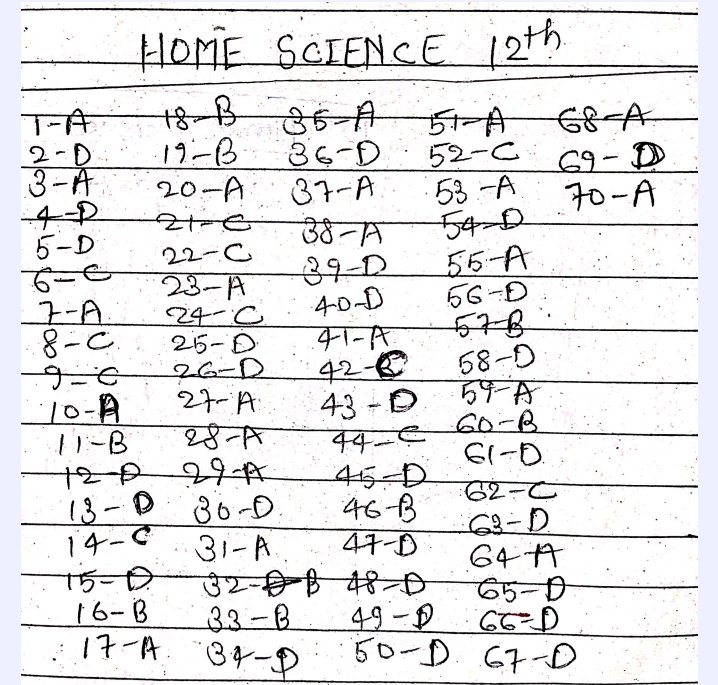 HOME SCIENCE 12th
1-A
2-D
3-A
4-D
5-D
6-C
7-A
8-C
9-C
10-A
11-B
12-D
13-D
14-C
15-D
16-B
17-A
18-B
19-B
20-A
21-C
22-C
23-A
24-C
25-D
26-D
27-A
28-A
29-A
30-D
31-A
32-B
33-B
34-D
35-A
36-D
37-A
38-A
39-D
40-D
41-A
42-C
43-D
44-C
45-D
46-B
47-D
48-D
49-D
50-D
51-A
52-C
53-A
54-D
55-A
56-D
57-B
58-D
59-A
60-B
61-D
62-C
63-D
64-A
65-D
66-D
67-D
68-A
69-D
70-A